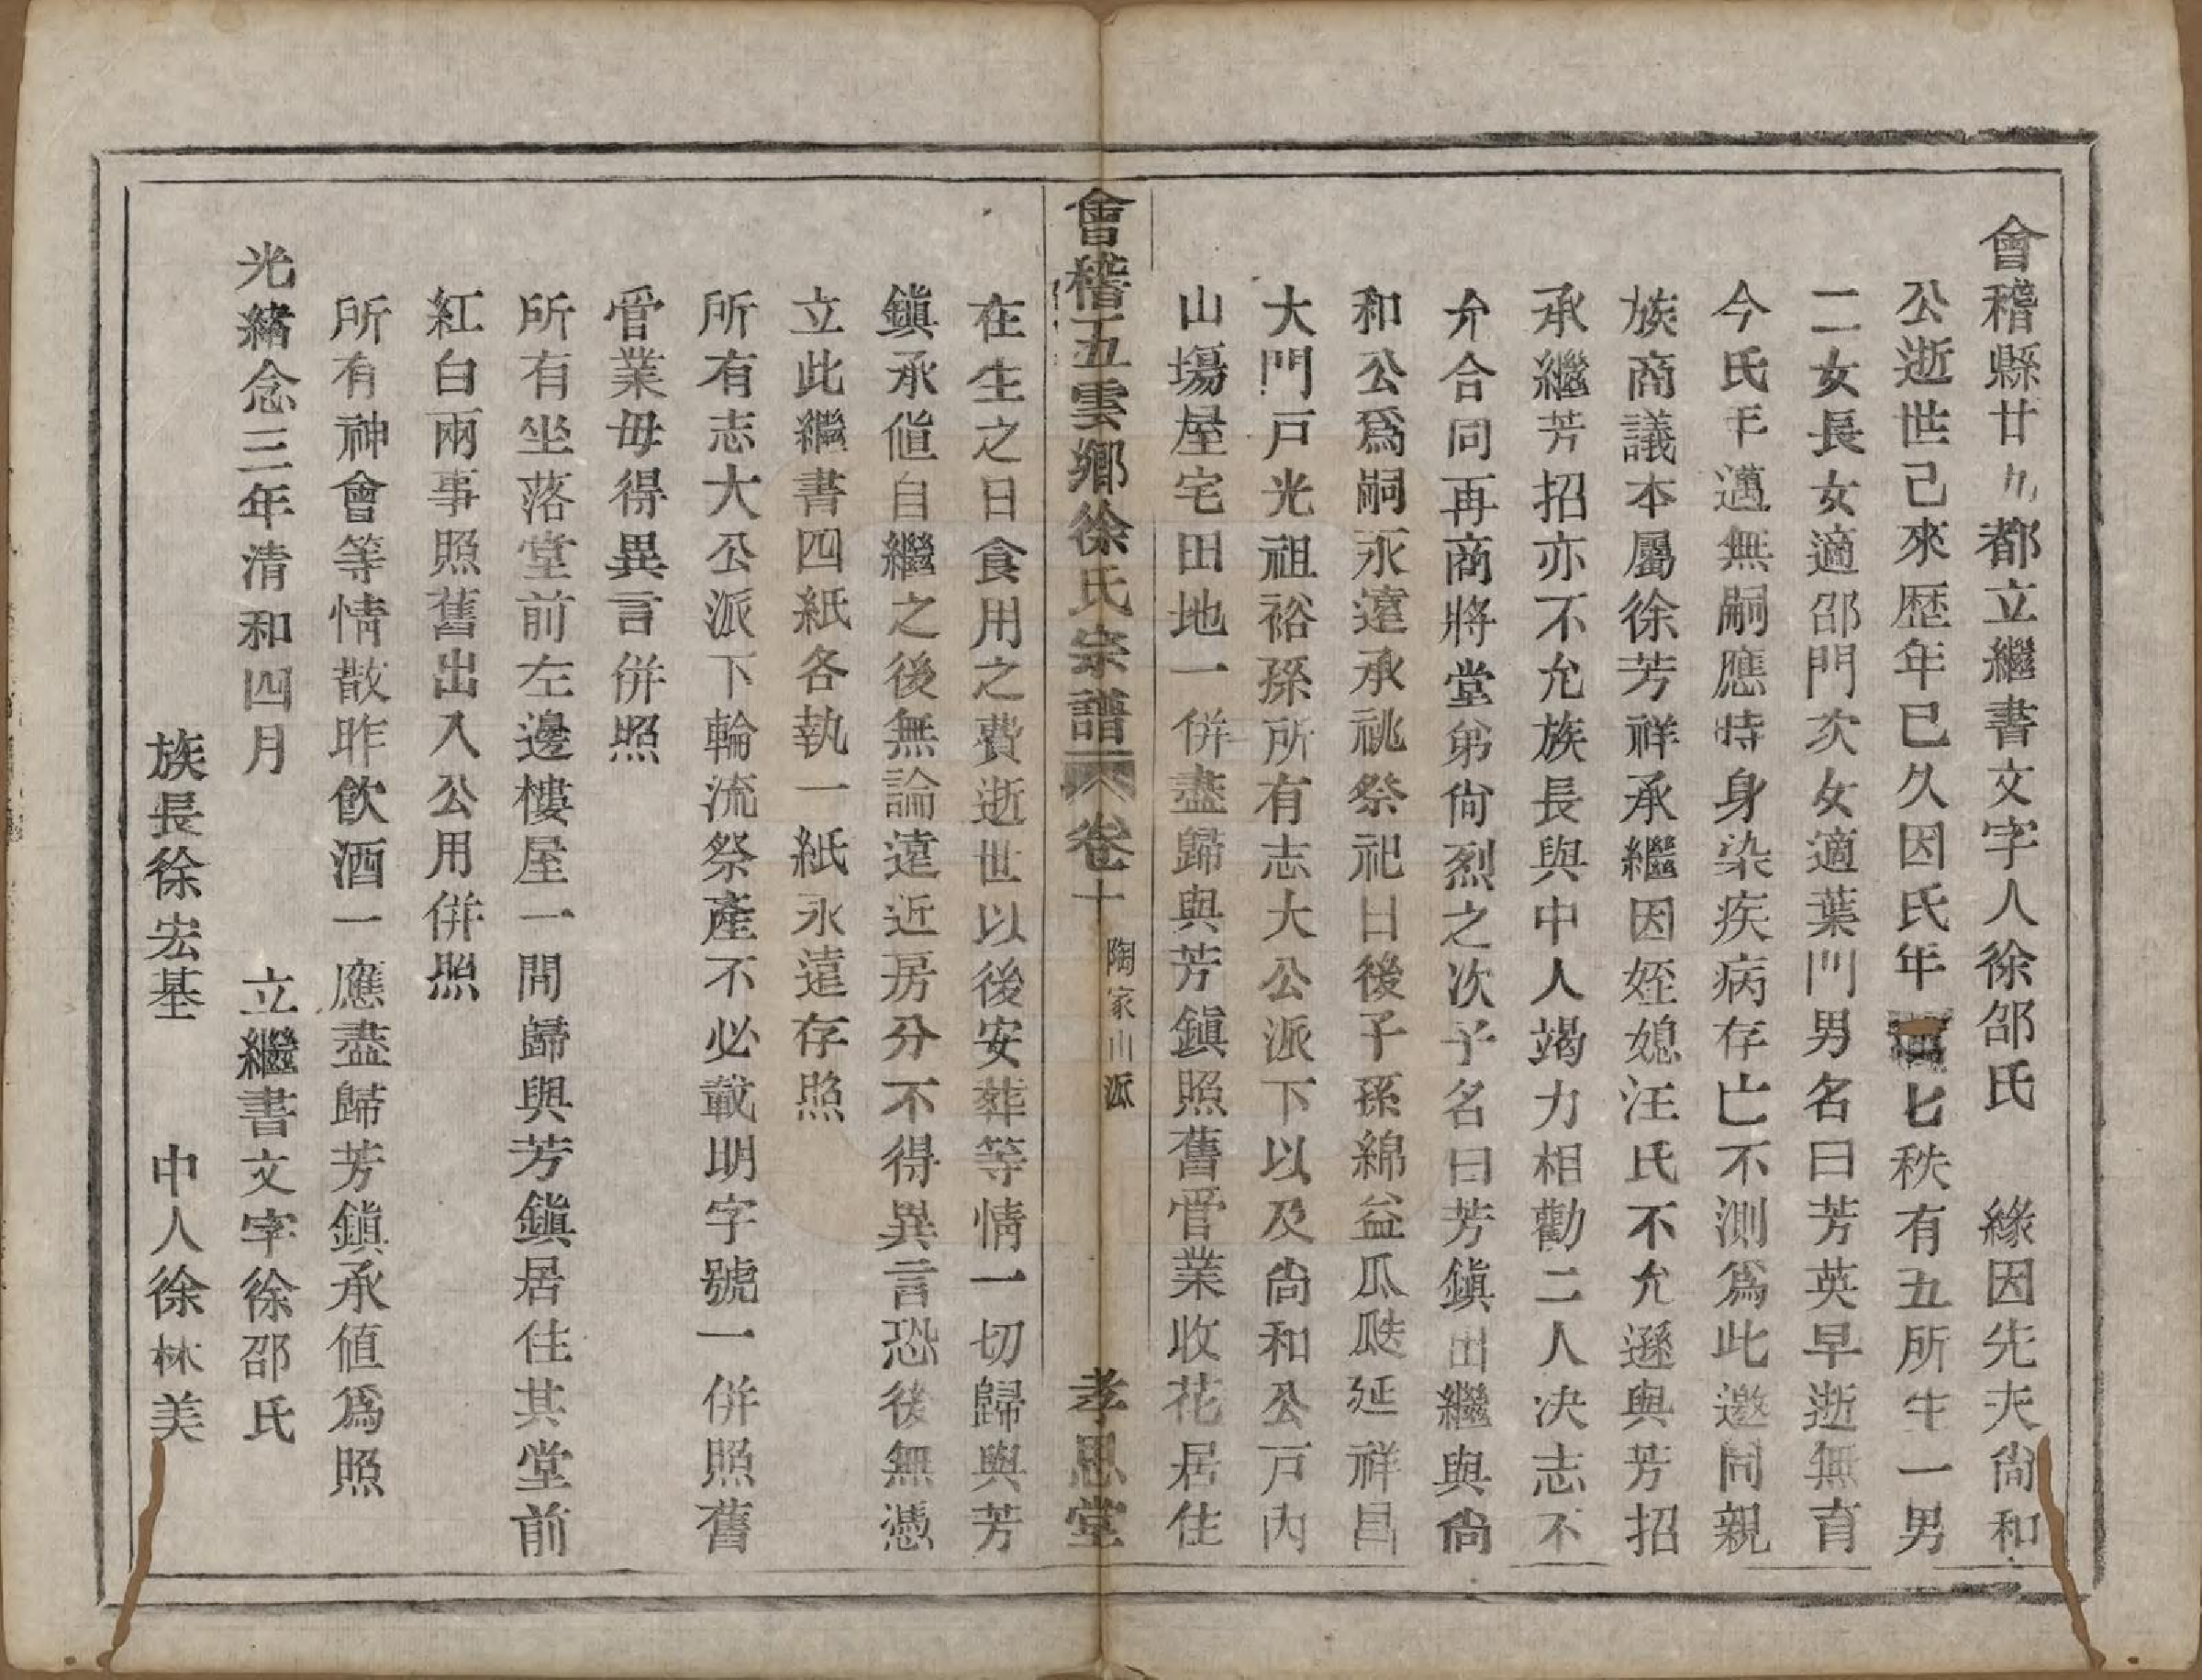 會稽縣廿九都立繼書文字人徐邵氏　緣因先夫尙和
公逝世己來歴年已久因氏年七秩有五所生一男
二女長女適邵門次女適葉門男名曰芳英早逝無育
今氏年邁無嗣應時身染疾病存亡不測爲此邀同親
族商議本屬徐芳祥承繼因姪媳汪氏不允遜與芳招
承繼芳招亦不允族長與中人竭力相勸二人决志不
允合同再商將堂弟尙烈之次子名曰芳鎭出繼與尙
和公爲嗣永遠承祧祭祀日後子孫綿益瓜瓞延祥昌
大門戸光祖裕孫所有志大公派下以及尙和公戸內
山塲屋宅田地一併盡歸與芳鎭照舊管業收花居住
會稽五雲鄉徐氏宗譜　卷十　陶家山派　孝思堂
在生之日食用之費逝世以後安葬等情一切歸與芳
鎭承値自繼之後無論遠近房分不得異言恐後無憑
立此繼書四紙各執一紙永遠存照
所有志大公派下輪流祭產不必載明字號一併照舊
管業毋得異言併照
所有坐落堂前左邊樓屋一間歸與芳鎭居住其堂前
紅白兩事照舊出入公用併照
所有神會等情散昨飮酒一應盡歸芳鎭承値爲照
光緖念三年清和四月　立繼書文字徐邵氏
族長徐宏基　中人徐林美